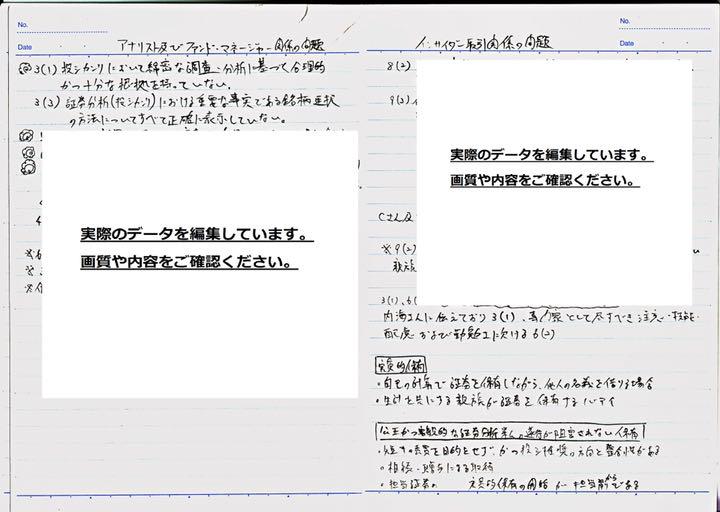 No.
Date
アナリスト及びファンド・マネージャー関係の問題
3(1) 投シカンリにおいて綿密な調査・分析に基づく合理的
かつ十分な根拠を持っていない。
3(3) 証券分析(投シカンリ)における重要な事実である銘柄選択
の方法についてすべて正確に表示していない。
実際のデータを編集しています。
画質や内容をご確認ください。
No.
Date
インサイダー取引関係の問題
8(2)
9(3)
実際のデータを編集しています。
画質や内容をご確認ください。
Cさん及
※9(2)
親族
3(1)、6(
内海さんに伝えており 3(1)、として尽すべき注意・技能・
配慮および勤勉さに欠ける 6(2)
実質的保有
・自己の計算で証券を保有しながら、他人の名義を借りる場合
・生計を共にする親族が証券を保有する
公正かつ客観的な証券分析業ムの遂行が阻害されない保有
・短キの売買を目的とせず、かつ投シ推奨の方向と整合性がある
・相続・贈与による取得
・担当証券の 実質的保有の開始が担当前からである